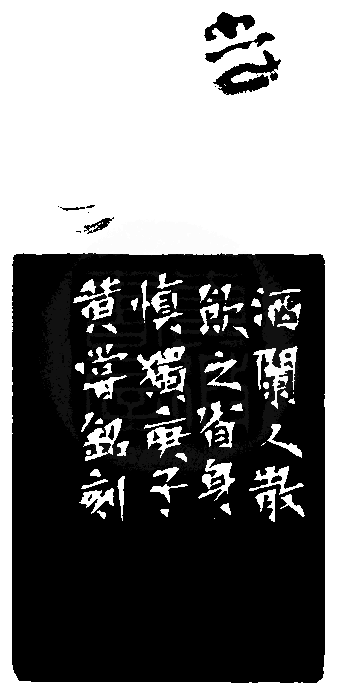 酒闌人散
飲之省身
慎獨庚子
黃嘗銘刻